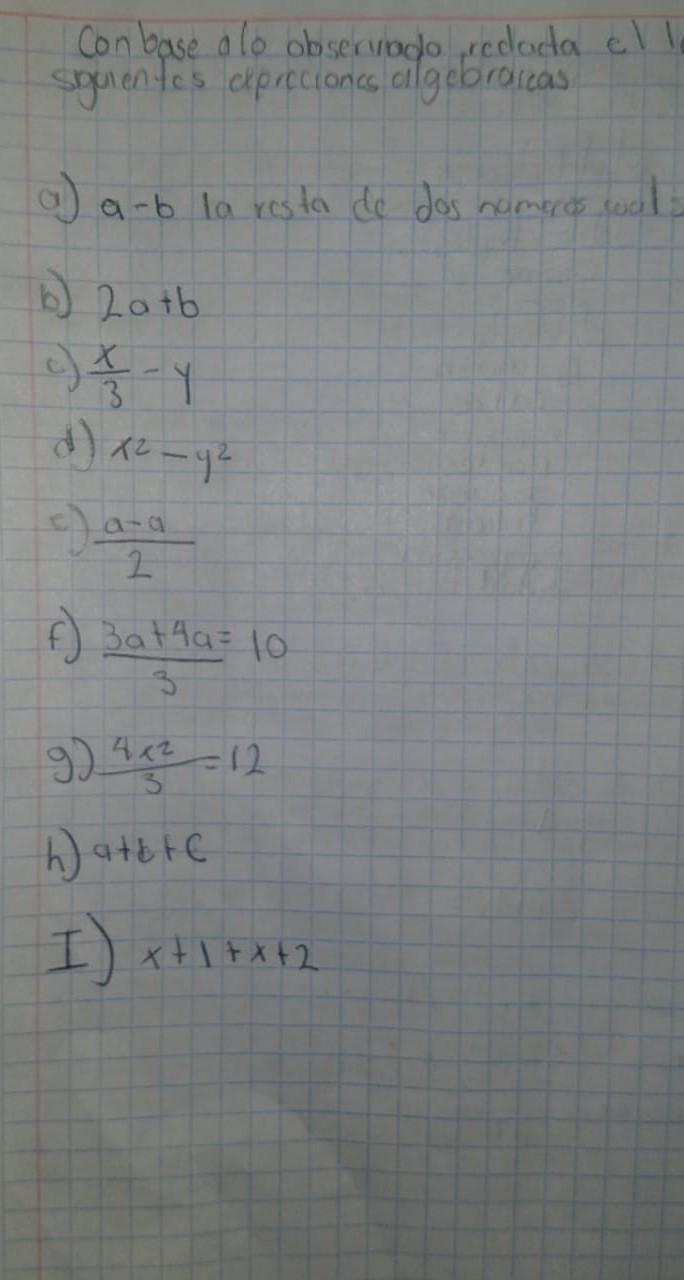 Con base a lo observado redacta el
siguientes expreciones algebraicas
a) a-b la resta de dos numeros cual
b) 2a+b
c) x/3 - y
d) x² - y²
e) a-a/2
f) 3a+4a/3 = 10
g) 4x²/3 = 12
h) a+b+c
I) x+1+x+2